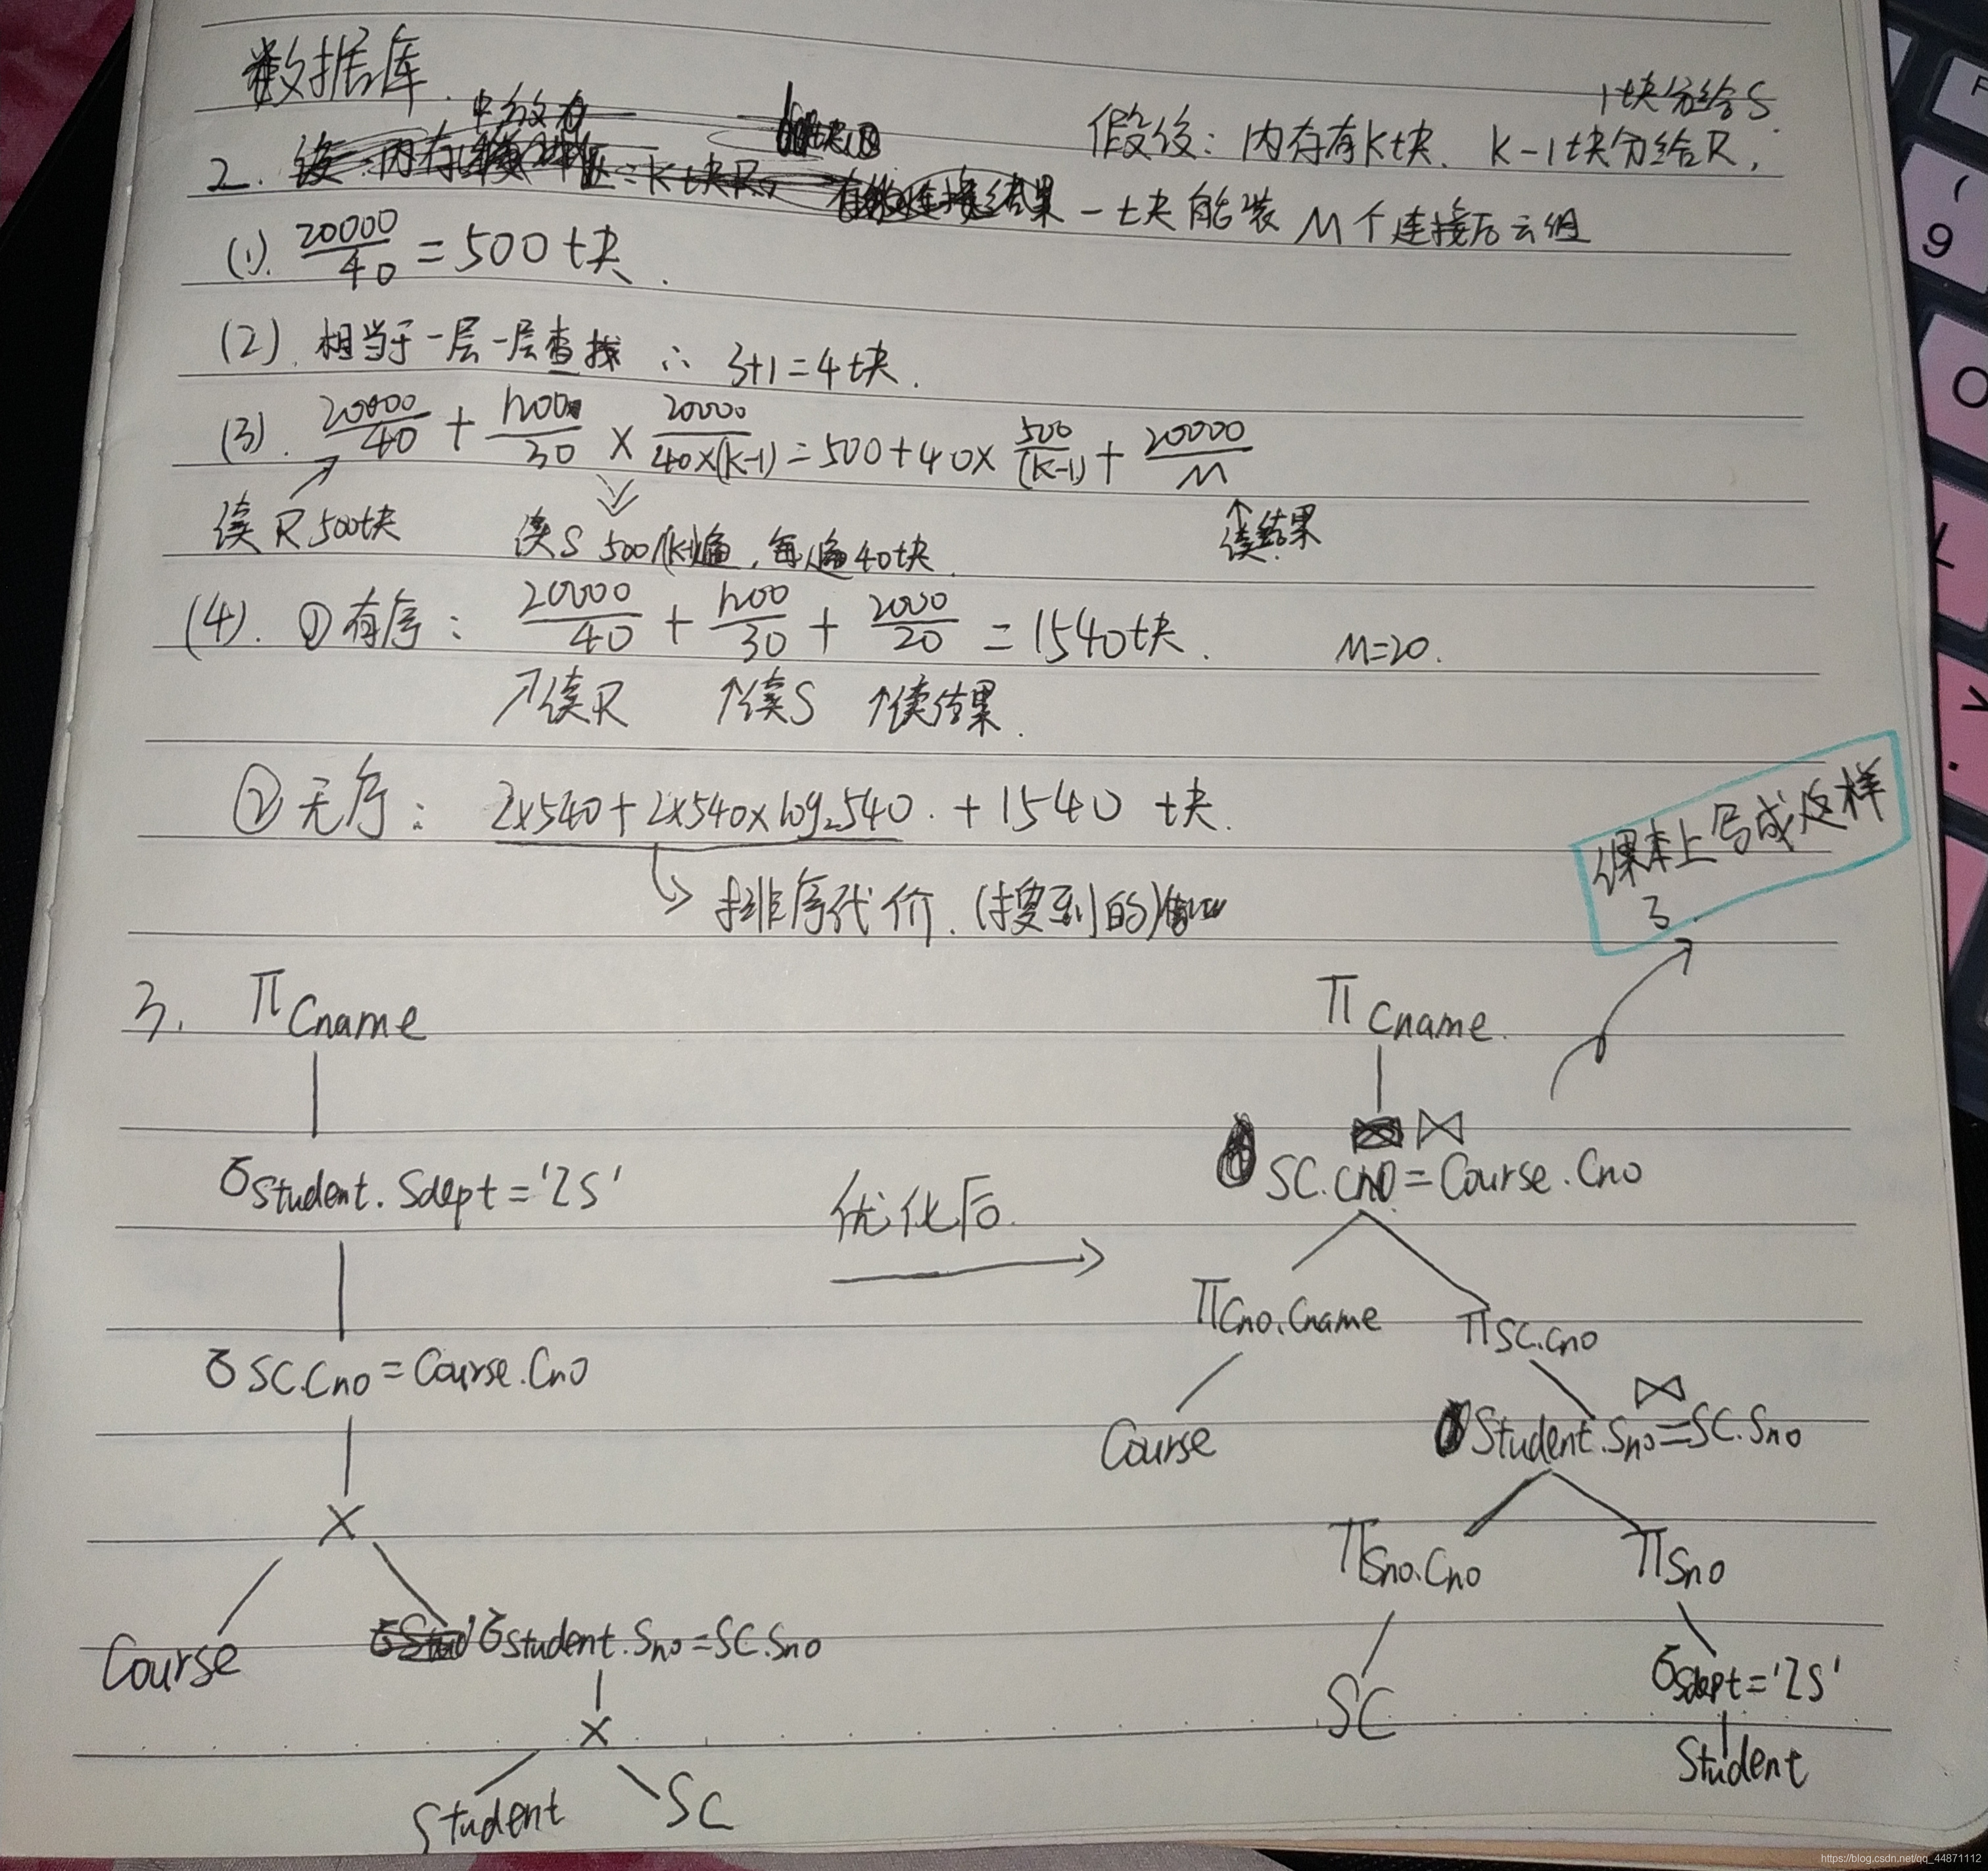 数据库
假设：内存有K块. K-1块分给R, 1块分给S.
2.
一块能装 M个连接后元组
(1). 20000/40 = 500块.
(2). 相当于一层一层查找 ∴ 3+1=4块.
(3). 20000/40 + 1200/30 × 20000/40×(K-1) = 500+40× 500/(K-1) + 20000/M
读R 500块 读S 500/(K-1)遍, 每遍40块. 读结果
(4). ①有序: 20000/40 + 1200/30 + 2000/20 = 1540块. M=20.
读R 读S 读结果.
②无序: 2×540+2×540×log₂540. + 1540 块.
排序代价. (搜到的)
课本上写成这样
了.
3. π Cname
π Cname.
σ Student.Sdept='IS'
⋈
SC.Cno=Course.Cno
优化后.
π Cno.Cname π SC.Cno
σ SC.Cno=Course.Cno
⋈
Course Student.Sno=SC.Sno
×
π Sno.Cno π Sno
Course σ Student.Sno=SC.Sno
SC σ Sdept='IS'
×
Student
Student SC
https://blog.csdn.net/qq_44871112
F
(
9
O